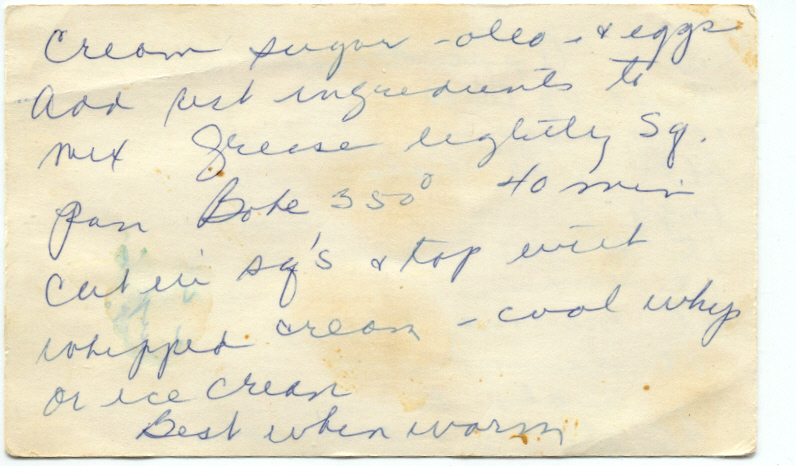 Cream sugar - oleo - & eggs
Add rest ingredients to
mix Grease lightly Sq.
pan Bake 350° 40 min
Cut in sq's & top with
whipped cream - cool whip
or ice cream
Best when warm